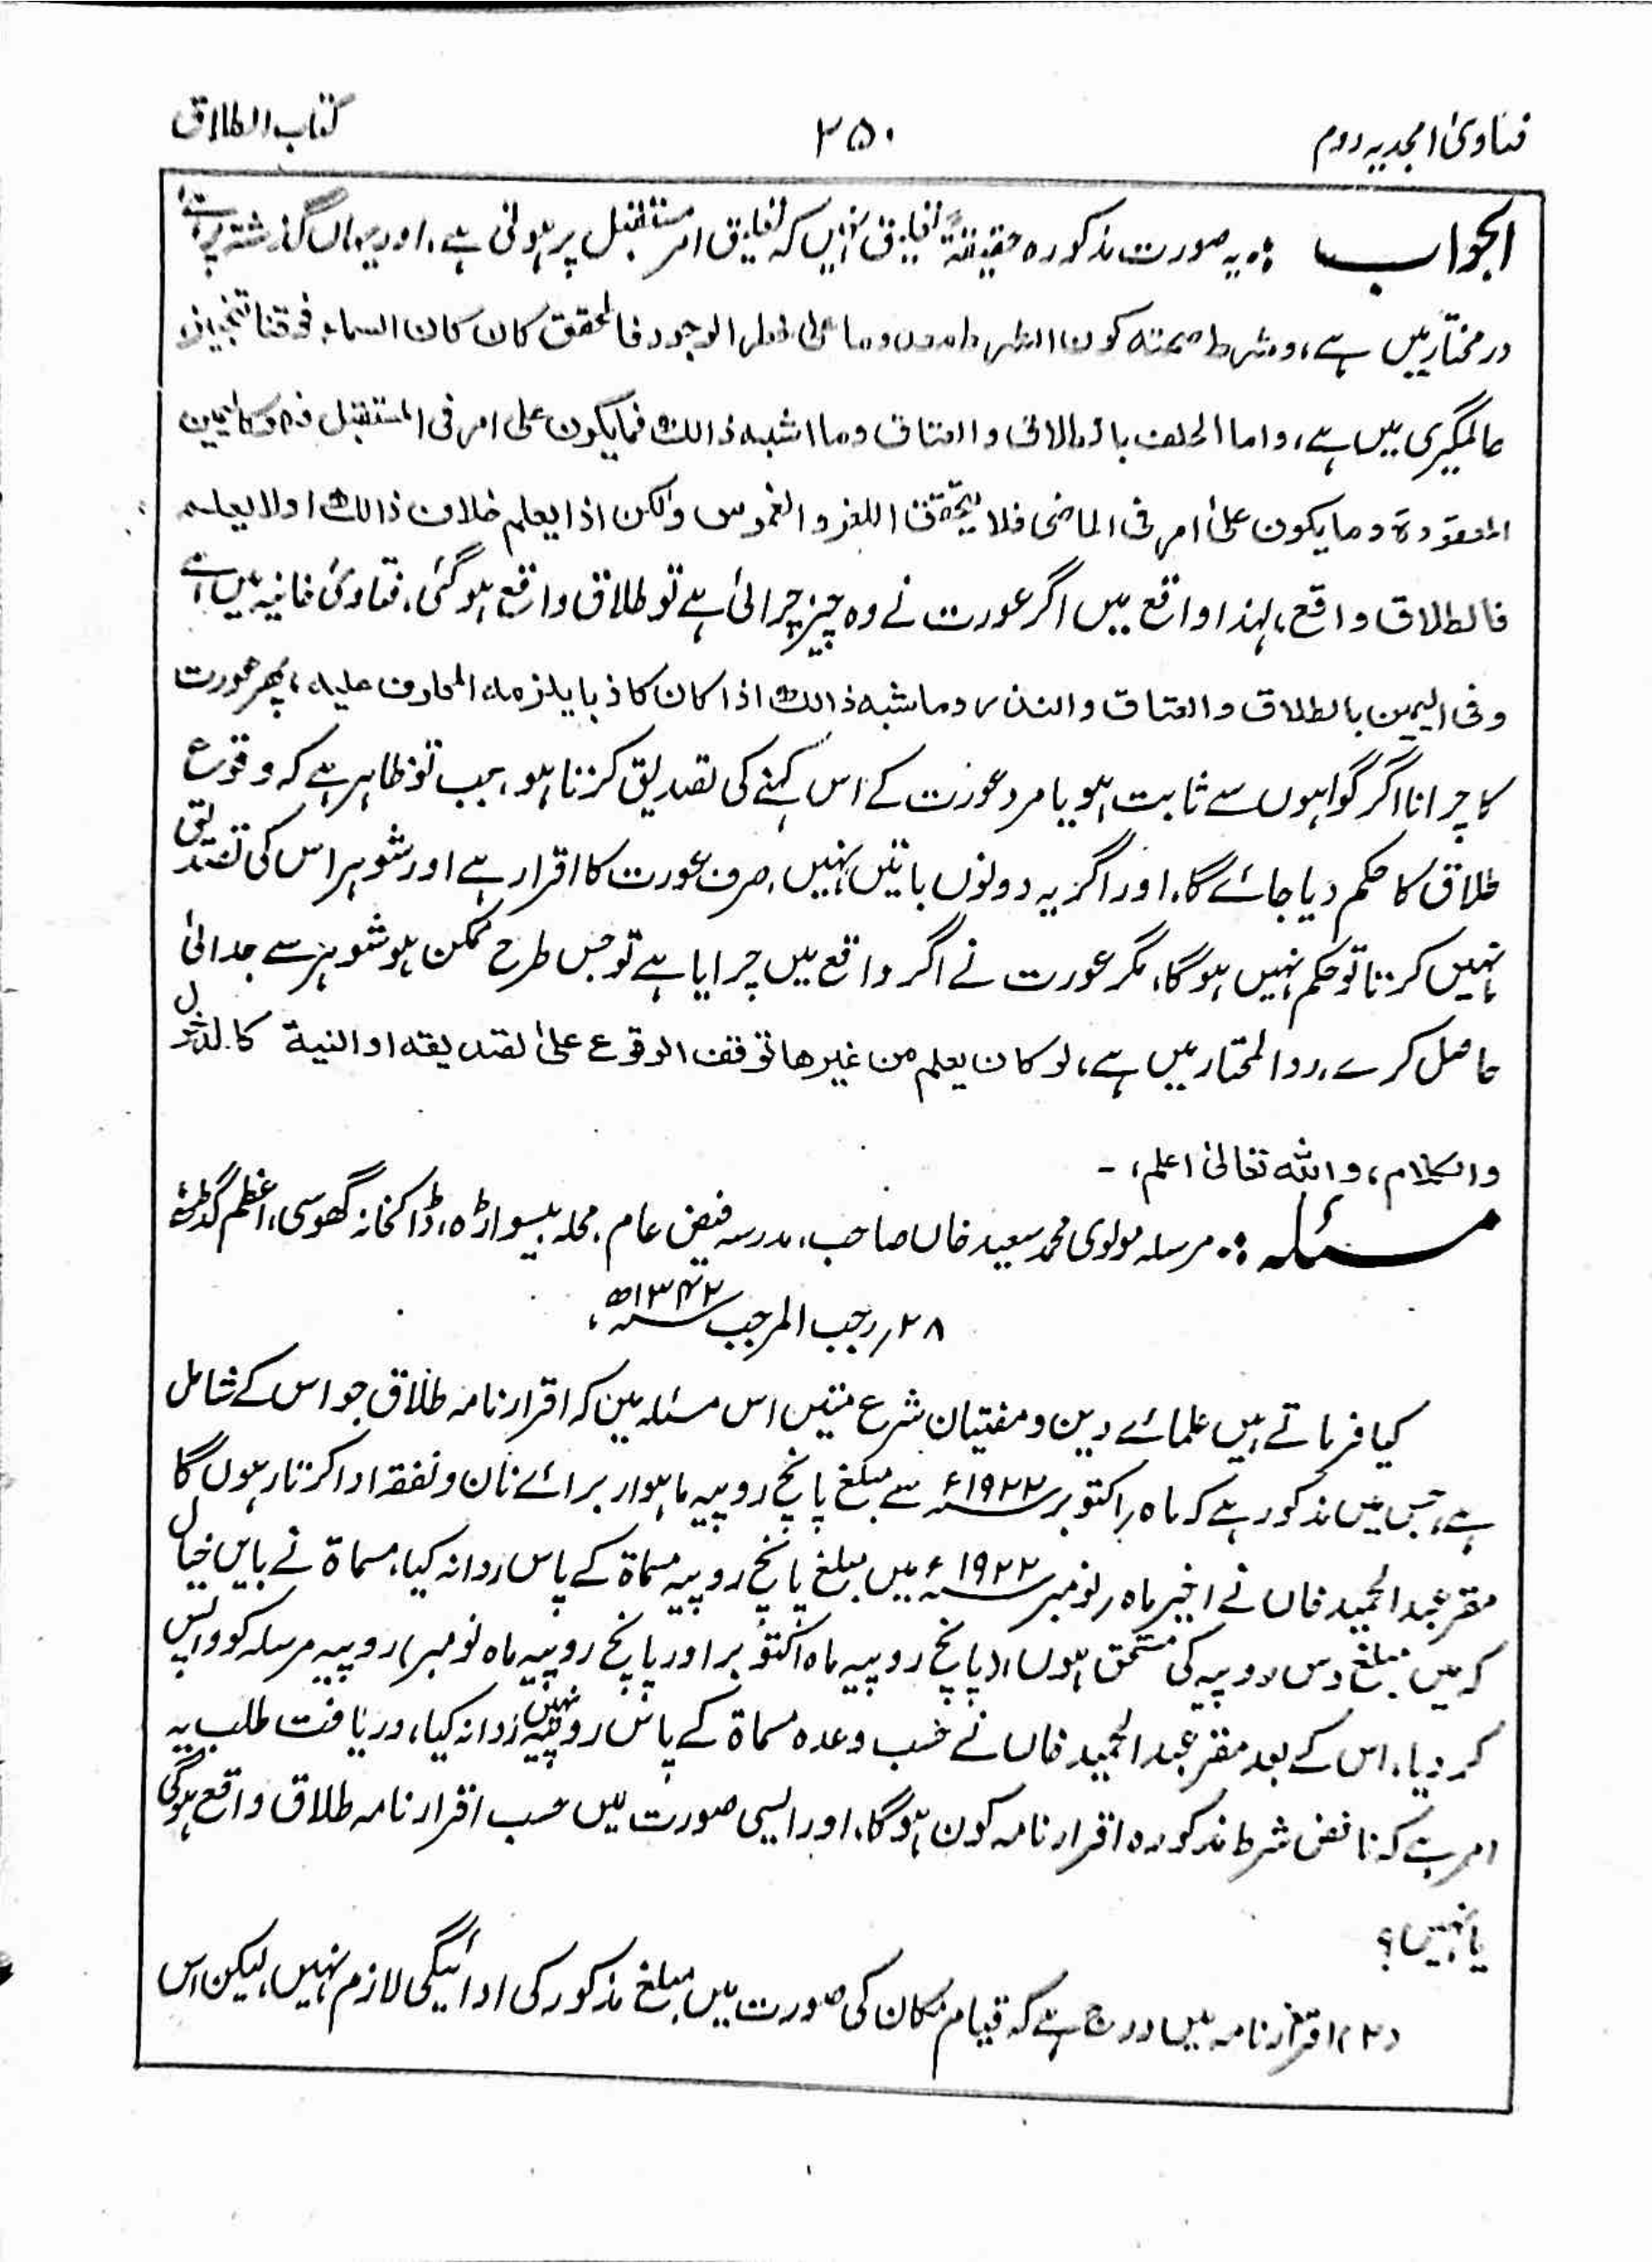 فتاویٰ امجدیہ دوم
۲۵۰
کتاب الطلاق
الجواب :۔ یہ صورت مذکورہ حقیقۃً تعلیق نہیں کہ تعلیق امر مستقبل پر ہوتی ہے، اور یہاں گذشتہ پر ہے
درمختار میں ہے، وشرط صحته کون الشرط معدوما علی خطر الوجود فالمحقق کان کان السماء فوقنا تنجیز،
عالمگیری میں ہے، واما الحلف بالطلاق والعتاق وما اشبه ذالك فمایکون علی امر فی المستقبل فهو کالیمین
المعقودة وما یکون علیٰ امر فی الماضی فلا یتحقق اللغو والغموس ولکن اذا یعلم خلاف ذالك اولا یعلم
فالطلاق واقع، لہذا واقع میں اگر عورت نے وہ چیز چرالی ہے تو طلاق واقع ہوگئی، فتاویٰ خانیہ میں ہے
وفی الیمین بالطلاق والعتاق والنذر وماشبه ذالك اذا کان کاذبا یلزمه المحلوف علیه، پھر عورت
کا چرانا اگر گواہوں سے ثابت ہو یا مرد عورت کے اس کہنے کی تصدیق کرتا ہو، جب تو ظاہر ہے کہ وقوع
طلاق کا حکم دیا جائے گا، اور اگر یہ دونوں باتیں نہیں، صرف عورت کا اقرار ہے اور شوہر اس کی تصدیق
نہیں کرتا تو حکم نہیں ہوگا، مگر عورت نے اگر واقع میں چرایا ہے تو جس طرح ممکن ہو شوہر سے جدائی
حاصل کرے، ردالمحتار میں ہے، لو کان یعلم من غیرها توقف الوقوع علیٰ تصدیقه او النیة کالدخول
والکلام، واللہ تعالیٰ اعلم، ۔
مسئلہ :۔ مرسلہ مولوی محمد سعید خاں صاحب، مدرسہ فیض عام، محلہ بیسواڑہ، ڈاکخانہ گھوسی، اعظم گڈھ
۲۸؍ رجب المرجب ۱۳۴۲ھ،
کیا فرماتے ہیں علمائے دین و مفتیان شرع متیں اس مسئلہ میں کہ اقرار نامہ طلاق جو اس کے شامل
ہے، جس میں مذکور ہے کہ ماہ اکتوبر ۱۹۲۲ء سے مبلغ پانچ روپیہ ماہوار برائے نان ونفقہ ادا کرتا رہوں گا
مقر عبدالحمید خاں نے اخیر ماہ نومبر ۱۹۲۲ء میں مبلغ پانچ روپیہ مسماۃ کے پاس روانہ کیا، مسماۃ نے بایں خیال
کہ میں مبلغ دس روپیہ کی مستحق ہوں، (پانچ روپیہ ماہ اکتوبر اور پانچ روپیہ ماہ نومبر) روپیہ مرسلہ کو واپس
کر دیا، اس کے بعد مقر عبدالحمید خاں نے حسب وعدہ مسماۃ کے پاس روپیہ نہیں روانہ کیا، دریافت طلب یہ
امر ہے کہ ناقض شرط مذکورہ اقرار نامہ کون ہوگا، اور ایسی صورت میں حسب اقرار نامہ طلاق واقع ہوگی
یا نہیں؟
(۲) اقرار نامہ میں درج ہے کہ قیام مکان کی صورت میں مبلغ مذکور کی ادائیگی لازم نہیں، لیکن اس